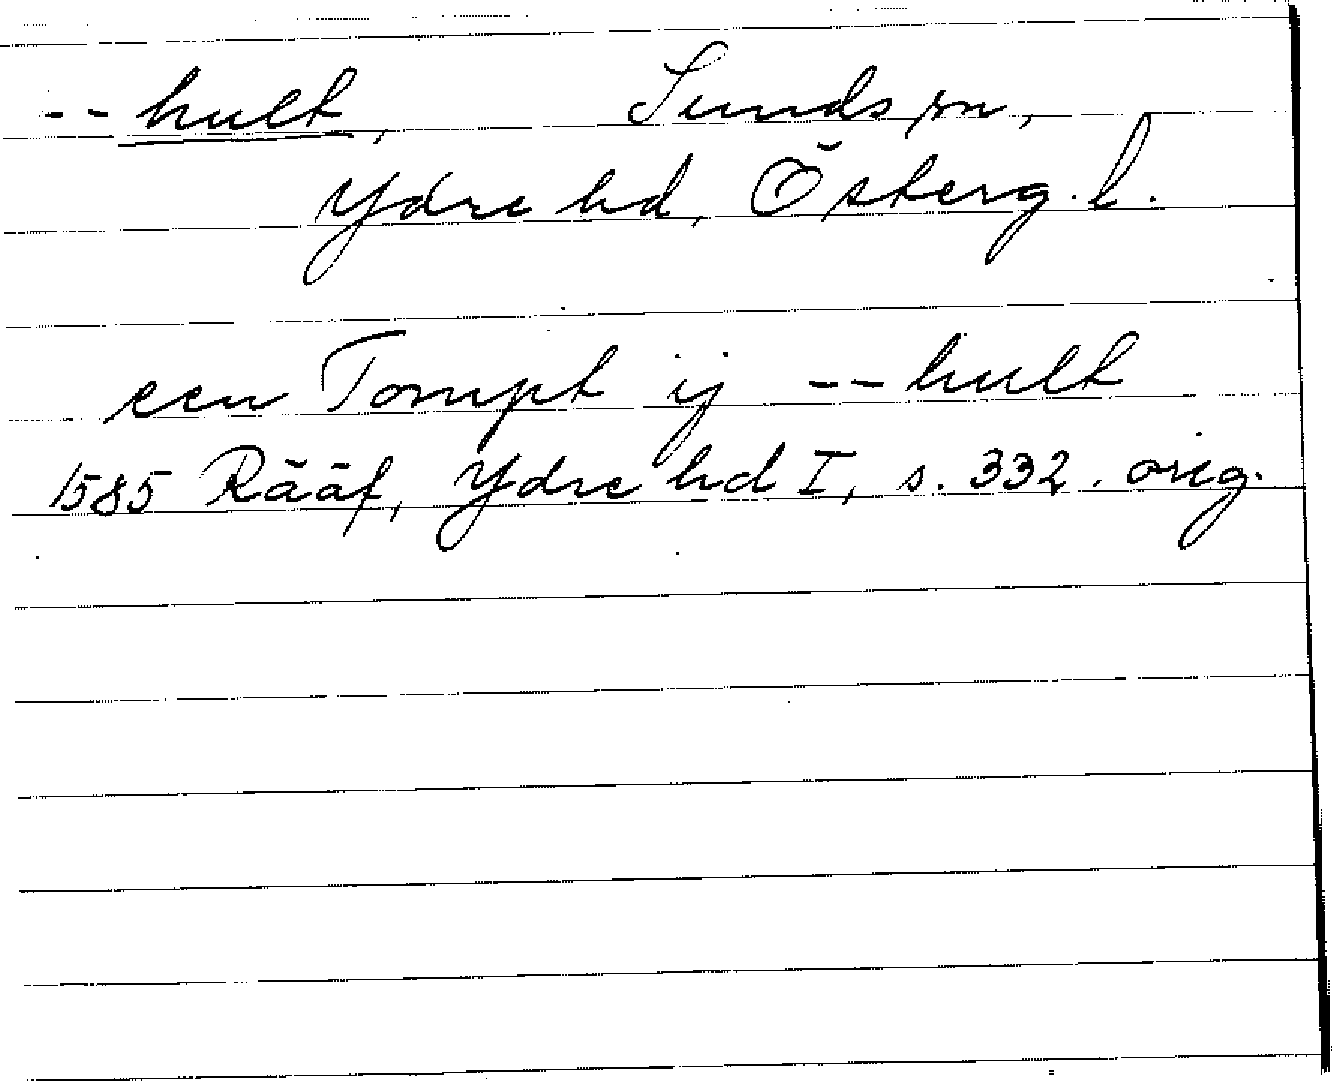 --hult, Sunds sn,
Ydre hd, Österg. l.
een Tompt ij --hult
1585 Rääf, Ydre hd I, s. 332. orig.